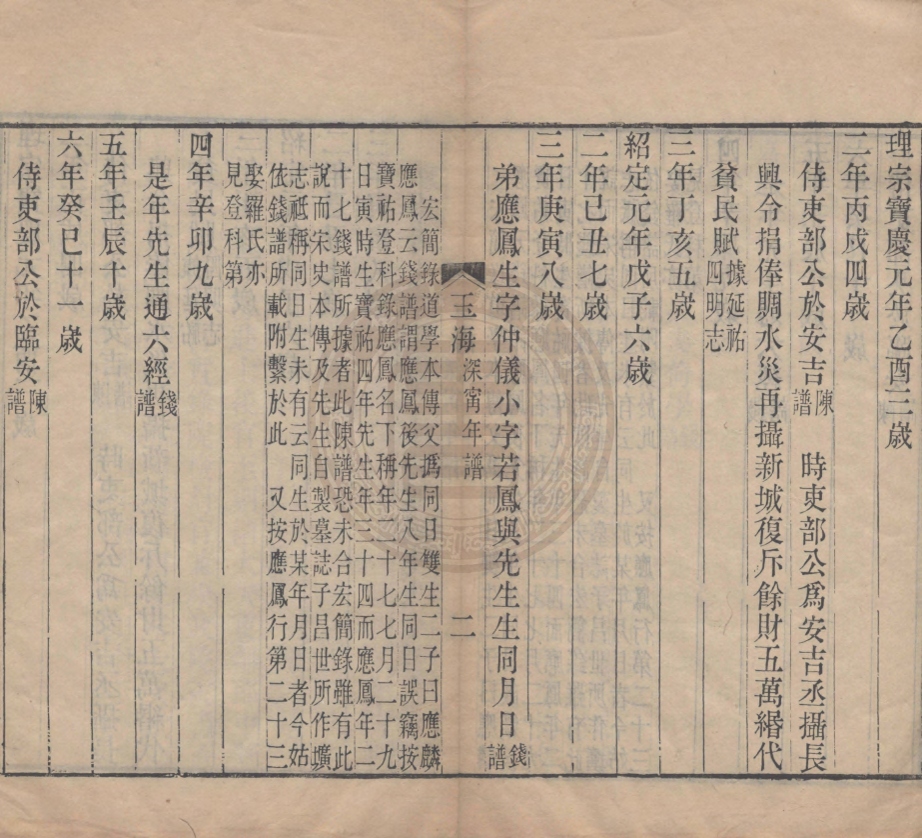 理宗寶慶元年乙酉三歲
二年丙戌四歲
侍吏部公於安吉陳譜 時吏部公爲安吉丞攝長
興令捐俸賙水災再攝新城復斥餘財五萬緡代
貧民賦據延祐四明志
三年丁亥五歲
紹定元年戊子六歲
二年己丑七歲
三年庚寅八歲
弟應鳳生字仲儀小字若鳳與先生生同月日錢譜
玉海 深甯年譜 二
宏簡錄道學本傳父撝同日雙生二子曰應麟
應鳳云錢譜謂應鳳後先生八年生同日誤竊按
寶祐登科錄應鳳名下稱年二十七七月二十九
日寅時生寶祐四年先生年三十四而應鳳年二
十七錢譜所據者此陳譜恐未合宏簡錄雖有此
說而宋史本傳及先生自製墓誌子昌世所作壙
志祗稱同日生未有云同生於某年月日者今姑
依錢譜所載附繫於此 又按應鳳行第二十三
娶羅氏亦
見登科第
四年辛卯九歲
是年先生通六經錢譜
五年壬辰十歲
六年癸巳十一歲
侍吏部公於臨安陳譜